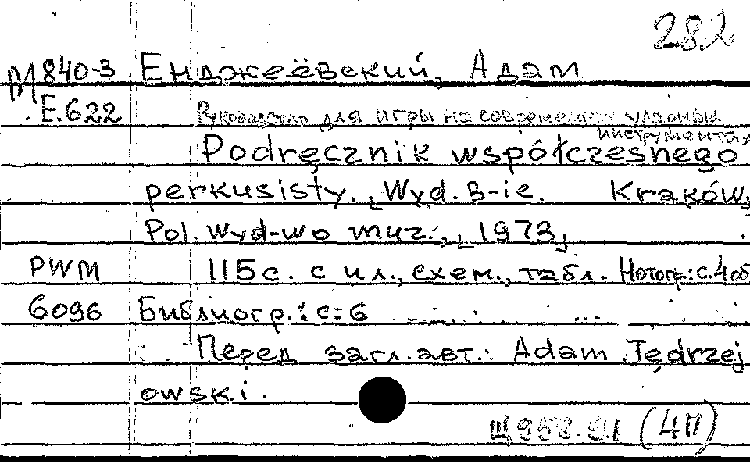 282
М840-3 Енджеёвский, Адам
Е.622 Руководство для игры на современных ударных
инструментах
Podręcznik współczesnego
perkusisty. Wyd. 3-ie. Kraków,
Pol. wyd-wo muz., 1973,
PWM 115 с. с ил., схем., табл. Нотогр.: с. 4 об
6096 Библиогр.: с. 6
Перед загл. авт.: Adam Jędrzej
owski.
Щ958.91 (4П)